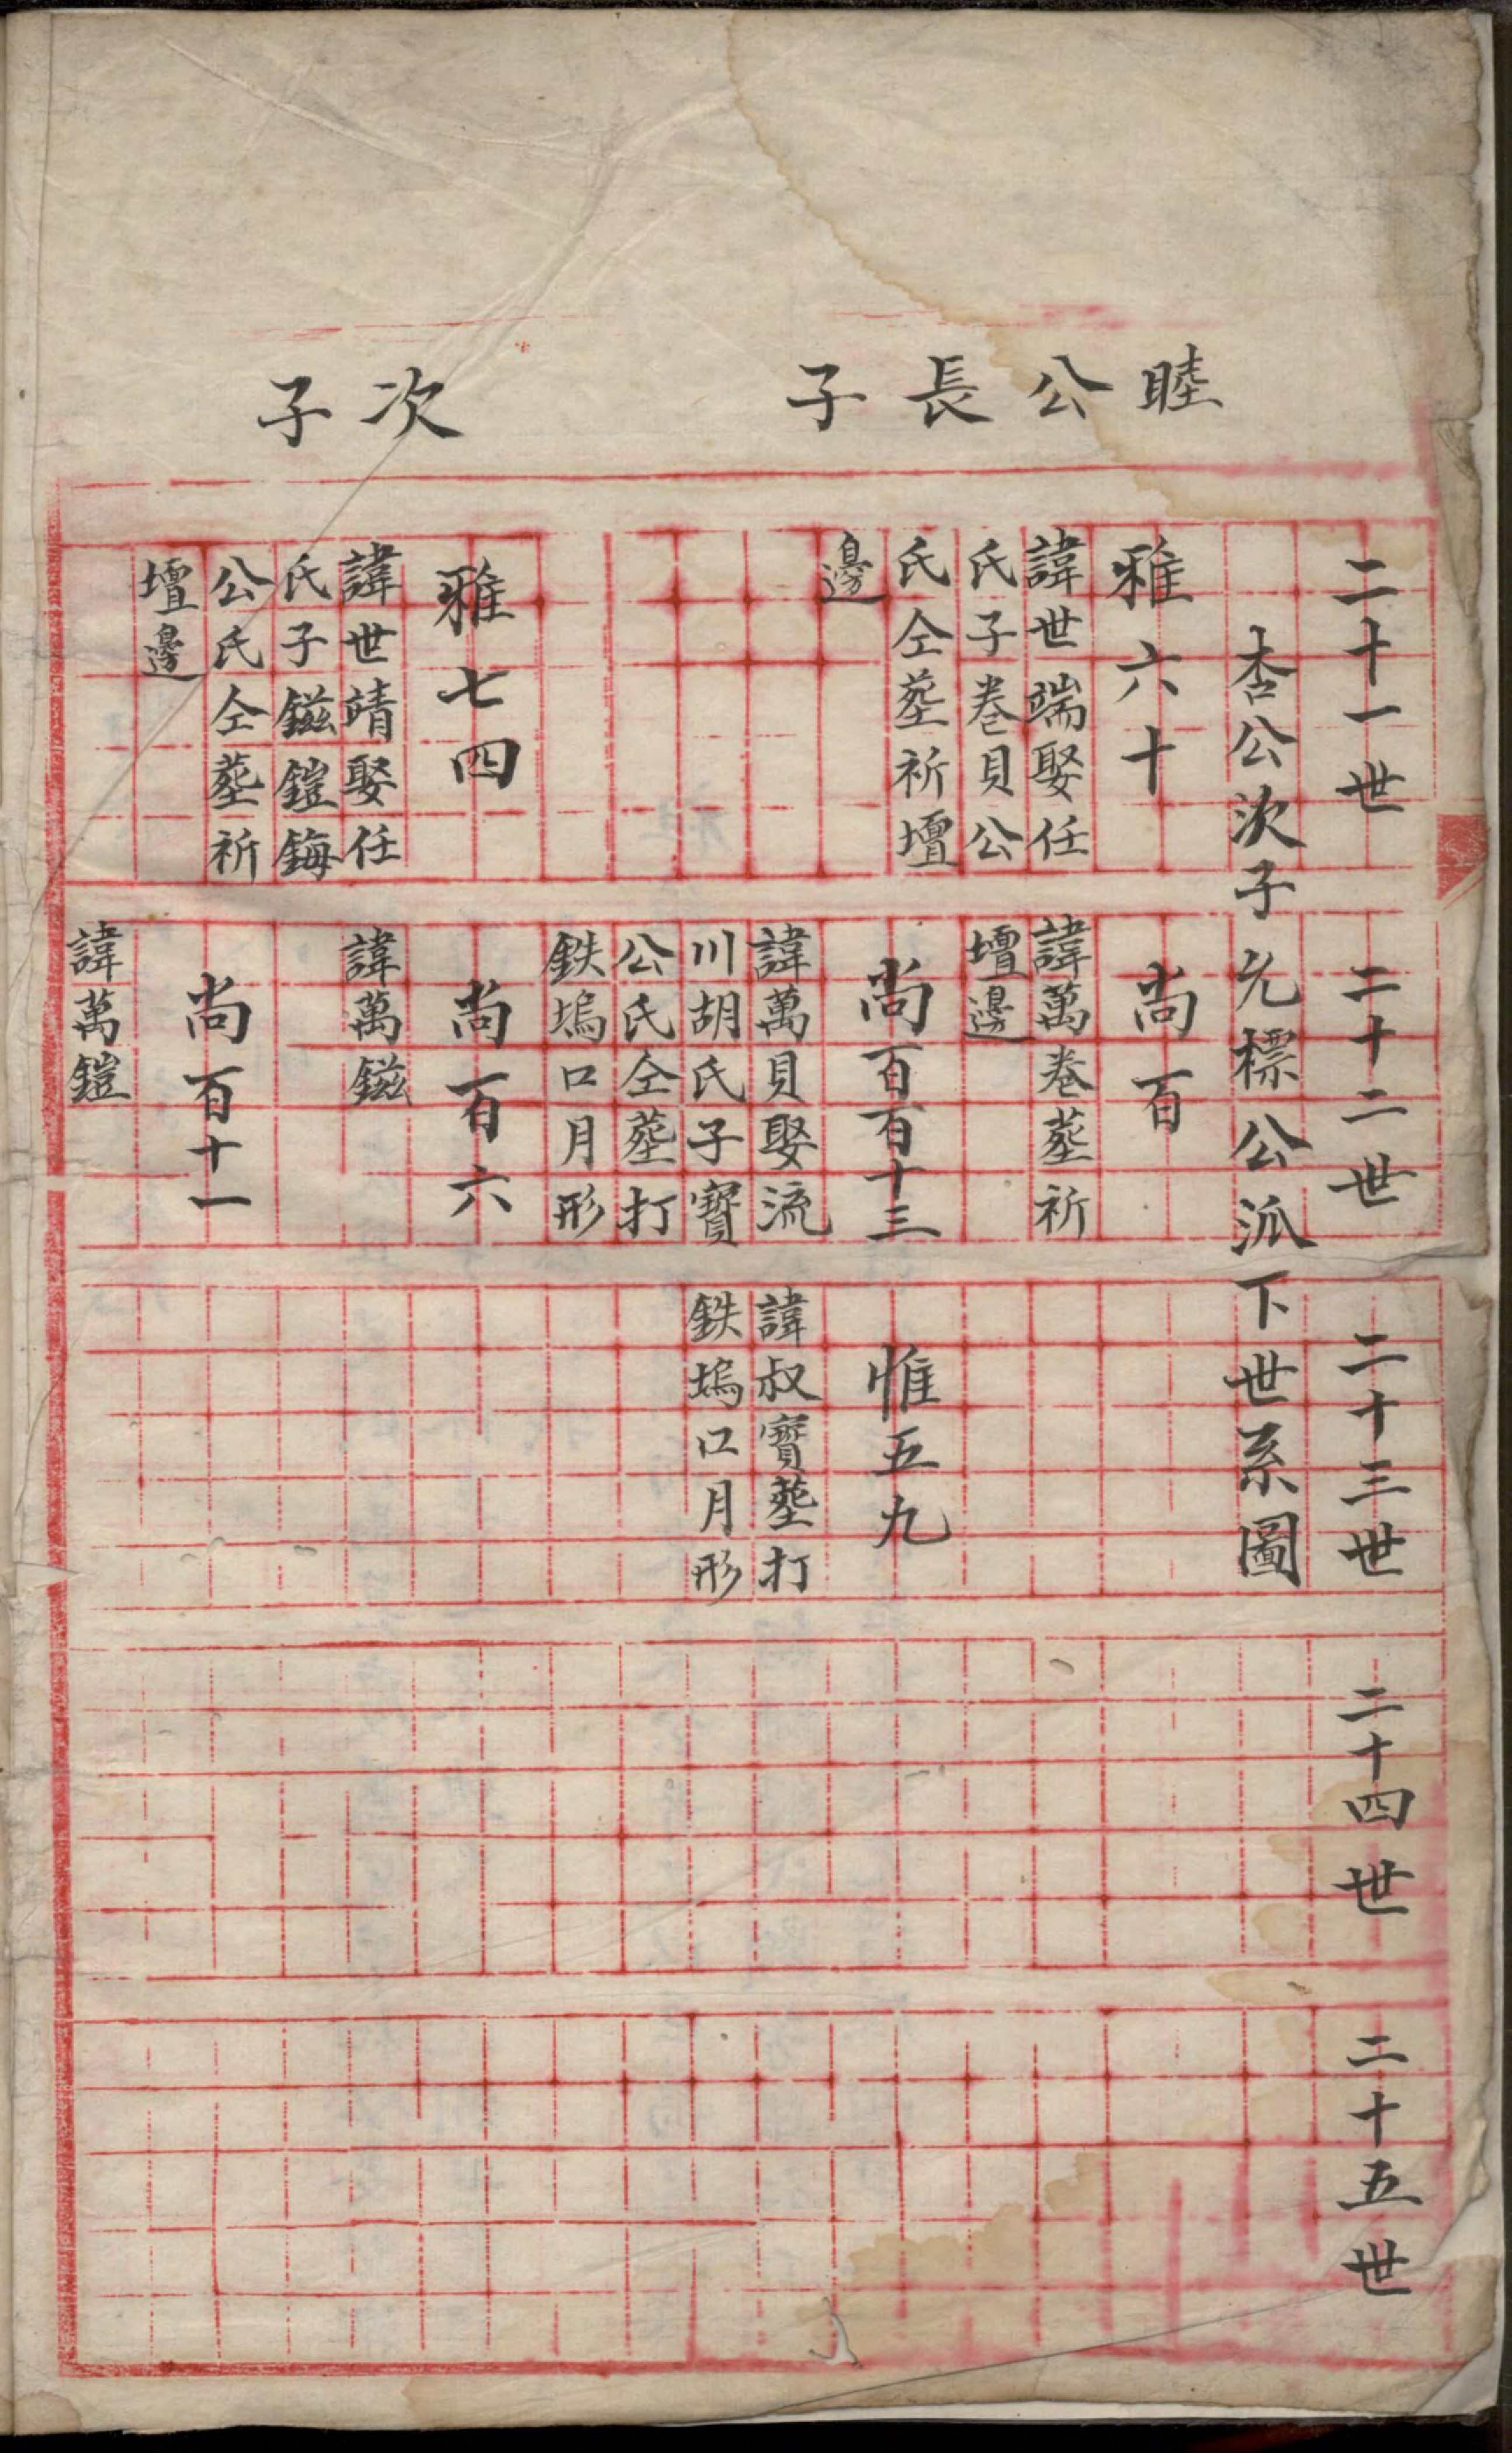 睦公長子
次子
二十一世
二十二世
二十三世
二十四世
二十五世
杏公次子元標公派下世系圖
雅六十
諱世端娶任
氏子卷貝公
氏仝塟祈壇
邊
雅七四
諱世靖娶任
氏子鎡鎧鋂
公氏仝塟祈
壇邊
尚百
諱萬卷塟祈
壇邊
尚百百十三
諱萬貝娶流
川胡氏子寶
公氏仝塟打
鉄塢口月形
尚百六
諱萬鎡
尚百十一
諱萬鎧
惟五九
諱叔寶塟打
鉄塢口月形